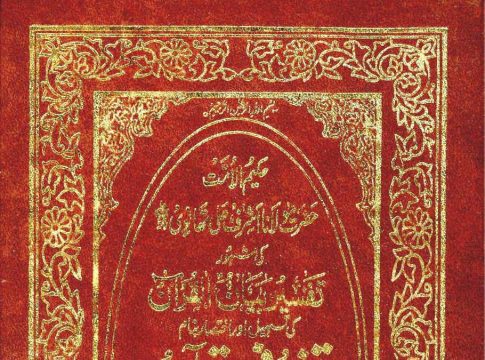 بسم الله الرحمن الرحیم
حکیم الامت
حضرت مولانا اشرف علی تھانوی
کی مشہور
تفسیر بیان القرآن
کی تسہیل اور اختصار بنام